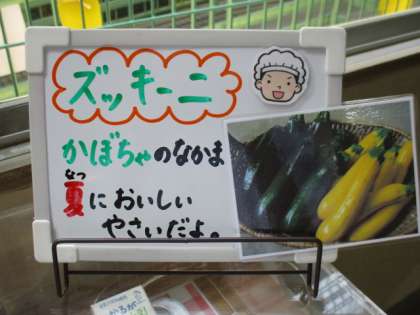 ズッキーニ
かぼちゃのなかま
なつ
夏においしい
やさいだよ。